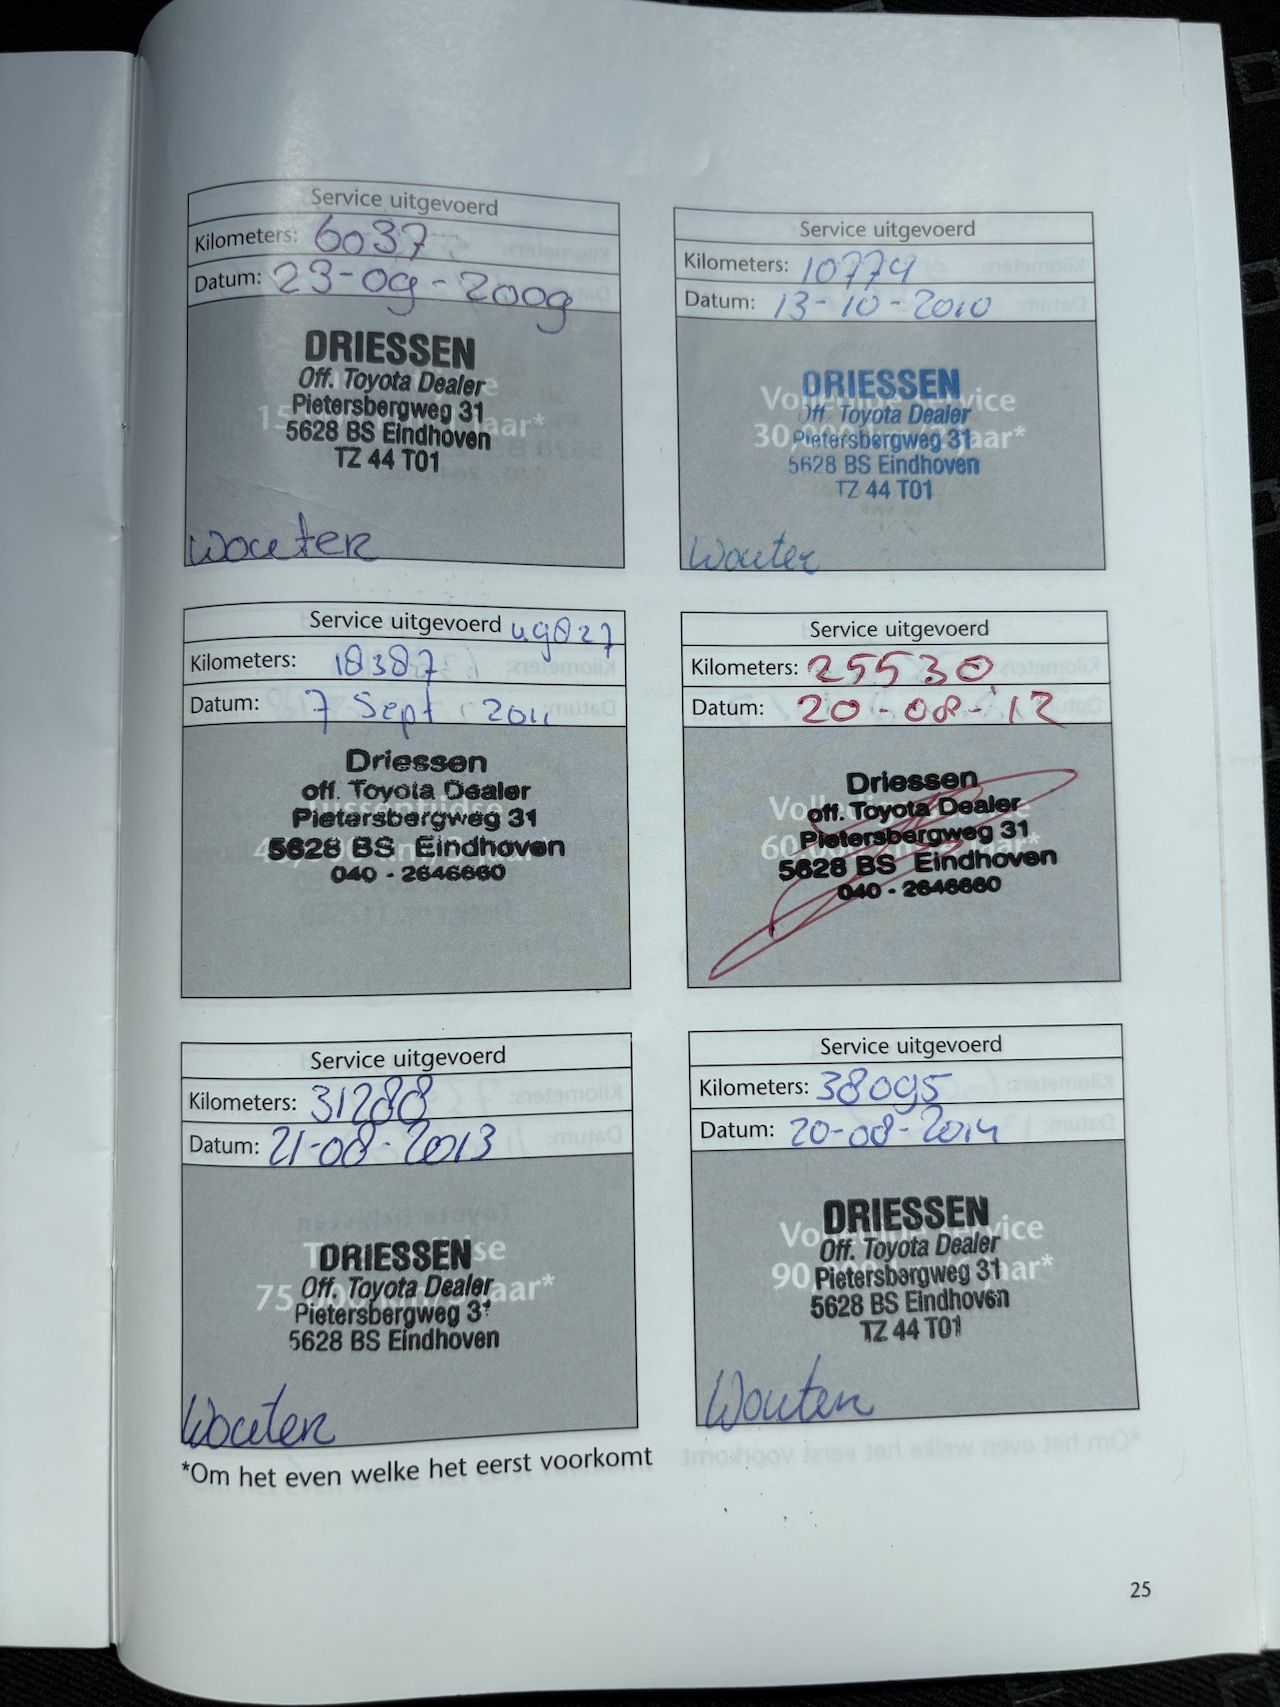 Service uitgevoerd
Kilometers: 6037
Datum: 23-09-2009
DRIESSEN
Off. Toyota Dealer
Pietersbergweg 31
5628 BS Eindhoven
TZ 44 T01
Wouter
Service uitgevoerd
Kilometers: 10779
Datum: 13-10-2010
Volledige service
30,000 km/2 jaar*
DRIESSEN
Off. Toyota Dealer
Pietersbergweg 31
5628 BS Eindhoven
TZ 44 T01
Wouter
Service uitgevoerd
Kilometers: 18387
Datum: 7 Sept 2011
Tussentijdse
Driessen
off. Toyota Dealer
Pietersbergweg 31
5628 BS Eindhoven
040 - 2646660
Service uitgevoerd
Kilometers: 25530
Datum: 20-08-12
Driessen
off. Toyota Dealer
Pietersbergweg 31
5628 BS Eindhoven
040 - 2646660
Service uitgevoerd
Kilometers: 31288
Datum: 21-08-2013
DRIESSEN
Off. Toyota Dealer
75,000 km/5 jaar*
Pietersbergweg 31
5628 BS Eindhoven
Wouter
Service uitgevoerd
Kilometers: 38095
Datum: 20-08-2014
Volledige service
90,000 km/6 jaar*
DRIESSEN
Off. Toyota Dealer
Pietersbergweg 31
5628 BS Eindhoven
TZ 44 T01
Wouter
*Om het even welke het eerst voorkomt
25